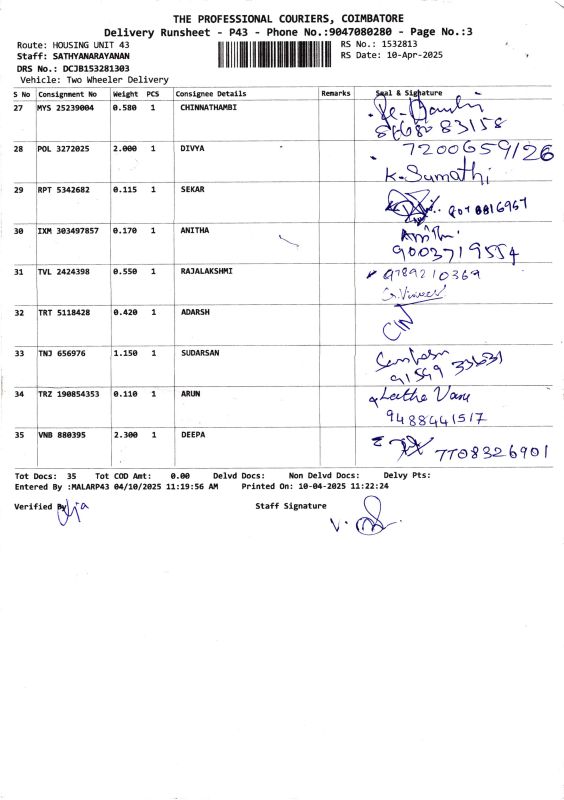 THE PROFESSIONAL COURIERS, COIMBATORE
Delivery Runsheet - P43 - Phone No.:9047080280 - Page No.:3
Route: HOUSING UNIT 43 RS No.: 1532813
Staff: SATHYANARAYANAN RS Date: 10-Apr-2025
DRS No.: DCJB153281303
Vehicle: Two Wheeler Delivery
S No Consignment No Weight PCS Consignee Details Remarks Seal & Signature
27 MYS 25239004 0.580 1 CHINNATHAMBI
83158
28 POL 3272025 2.000 1 DIVYA 7200659126
K. Sumathi
29 RPT 5342682 0.115 1 SEKAR
30 IXM 303497857 0.170 1 ANITHA
9003719554
31 TVL 2424398 0.550 1 RAJALAKSHMI 9789210369
32 TRT 5118428 0.420 1 ADARSH
33 TNJ 656976 1.150 1 SUDARSAN
34 TRZ 190854353 0.110 1 ARUN
9488441517
35 VNB 880395 2.300 1 DEEPA 7708326901
Tot Docs: 35 Tot COD Amt: 0.00 Delvd Docs: Non Delvd Docs: Delvy Pts:
Entered By :MALARP43 04/10/2025 11:19:56 AM Printed On: 10-04-2025 11:22:24
Verified By Staff Signature